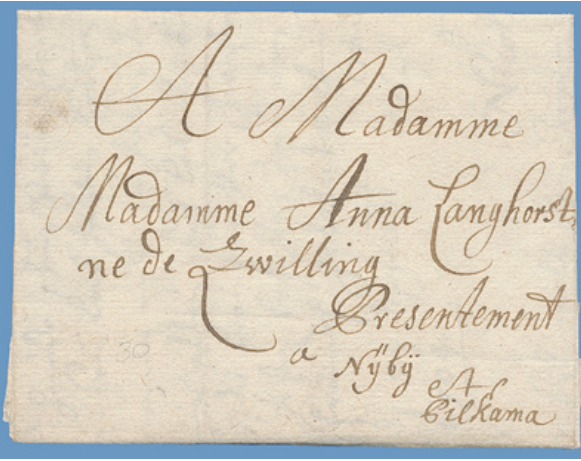 A Madamme
Madamme Anna Langhorst,
ne de Zwilling
Presentement
a Nÿbÿ
A
Pilkama
30